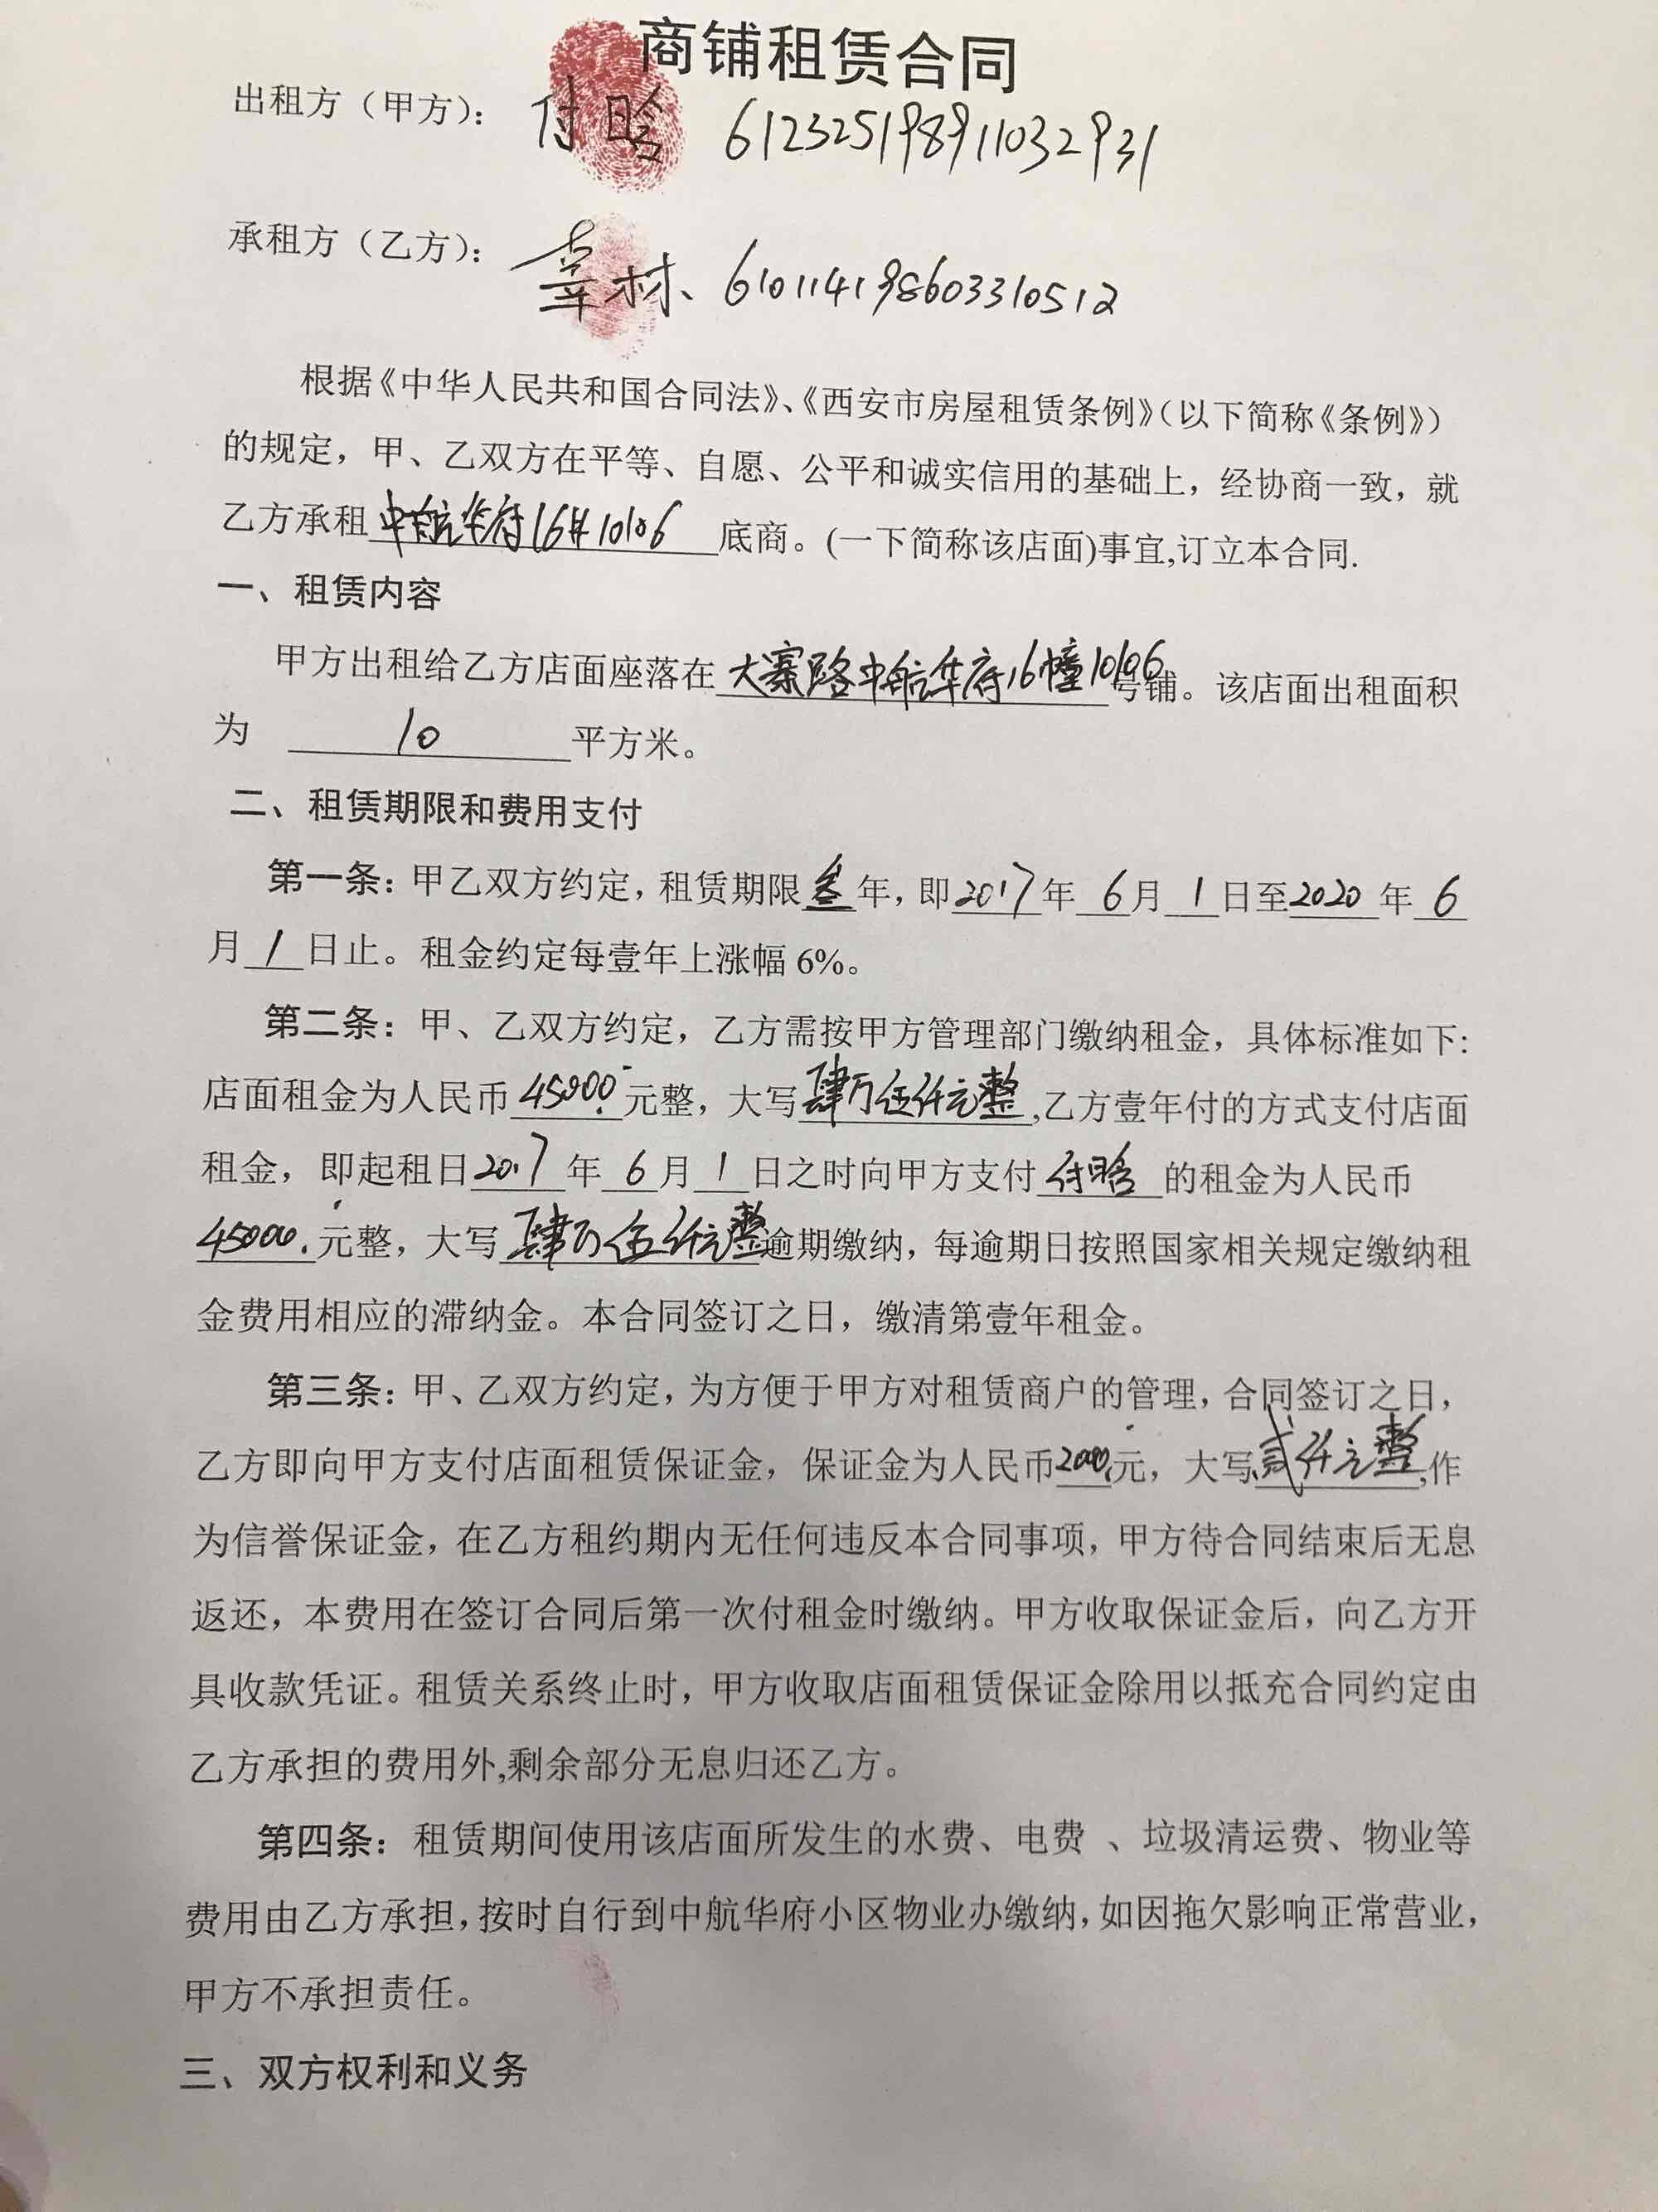 商铺租赁合同
出租方（甲方）： 付晗 612325198911032931
承租方（乙方）： 辜林、610114198603310512
根据《中华人民共和国合同法》、《西安市房屋租赁条例》（以下简称《条例》）
的规定，甲、乙双方在平等、自愿、公平和诚实信用的基础上，经协商一致，就
乙方承租中航华府16#10106底商。(一下简称该店面)事宜,订立本合同.
一、租赁内容
甲方出租给乙方店面座落在大寨路中航华府16幢10106号铺。该店面出租面积
为 10 平方米。
二、租赁期限和费用支付
第一条：甲乙双方约定，租赁期限叁年，即2017年6月1日至2020年6
月1日止。租金约定每壹年上涨幅 6%。
第二条：甲、乙双方约定，乙方需按甲方管理部门缴纳租金，具体标准如下：
店面租金为人民币45000.元整，大写肆万伍仟元整,乙方壹年付的方式支付店面
租金，即起租日2017年6月1日之时向甲方支付付晗的租金为人民币
45000.元整，大写肆万伍仟元整逾期缴纳，每逾期日按照国家相关规定缴纳租
金费用相应的滞纳金。本合同签订之日，缴清第壹年租金。
第三条：甲、乙双方约定，为方便于甲方对租赁商户的管理，合同签订之日，
乙方即向甲方支付店面租赁保证金，保证金为人民币2000.元，大写贰仟元整,作
为信誉保证金，在乙方租约期内无任何违反本合同事项，甲方待合同结束后无息
返还，本费用在签订合同后第一次付租金时缴纳。甲方收取保证金后，向乙方开
具收款凭证。租赁关系终止时，甲方收取店面租赁保证金除用以抵充合同约定由
乙方承担的费用外,剩余部分无息归还乙方。
第四条：租赁期间使用该店面所发生的水费、电费 、垃圾清运费、物业等
费用由乙方承担，按时自行到中航华府小区物业办缴纳，如因拖欠影响正常营业，
甲方不承担责任。
三、双方权利和义务